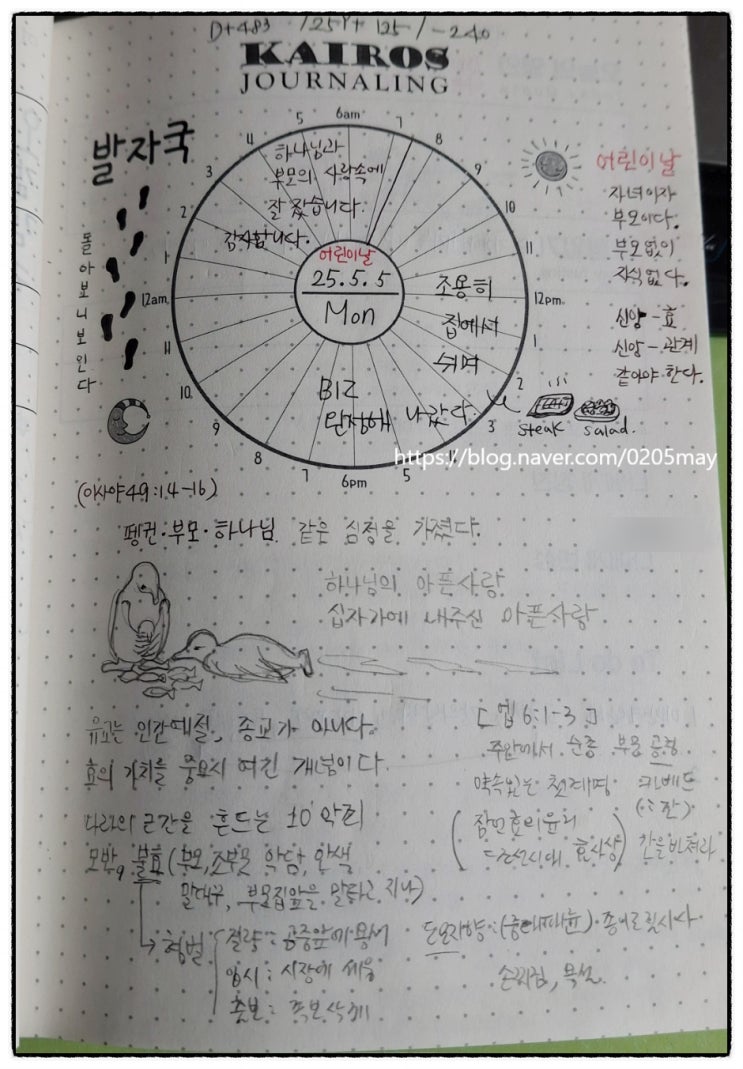 D+483 /25Y+ 125/-240
KAIROS
JOURNALING
발자국
돌아보니보인다
6am
7
8
9
10
11
12pm
1
2
3
5
6pm
7
8
9
10
11
12am
1
2
3
4
5
하나님과
부모의 사랑속에
잘 잤습니다.
감사합니다.
어린이날
25.5.5
Mon
조용히
집에서
쉬며
BIZ
나갔다.
어린이날
자녀이자
부모이다.
부모없이
자식없다.
신앙-효
신앙-관계
같아야 한다.
steak salad.
https://blog.naver.com/0205may
(이사야49:14-16)
펭귄·부모·하나님 같은 심정을 가졌다.
하나님의 아픈사랑
십자가에 내주신 아픈사랑
유교는 인간예절, 종교가 아니다.
효의 가치를 중요시 여긴 개념이다.
나라의 근간을 흔드는 10악죄
모반, 불효(부모,조부모 악담,
말대구, 부모집앞을 말타고 지나)
형벌
공중앞에
시장에 세움
출보: 족보삭제
[엡6:1-3]
주안에서 순종 부모 공경
약속있는 첫계명
잠언효의윤리
조선시대 효사상